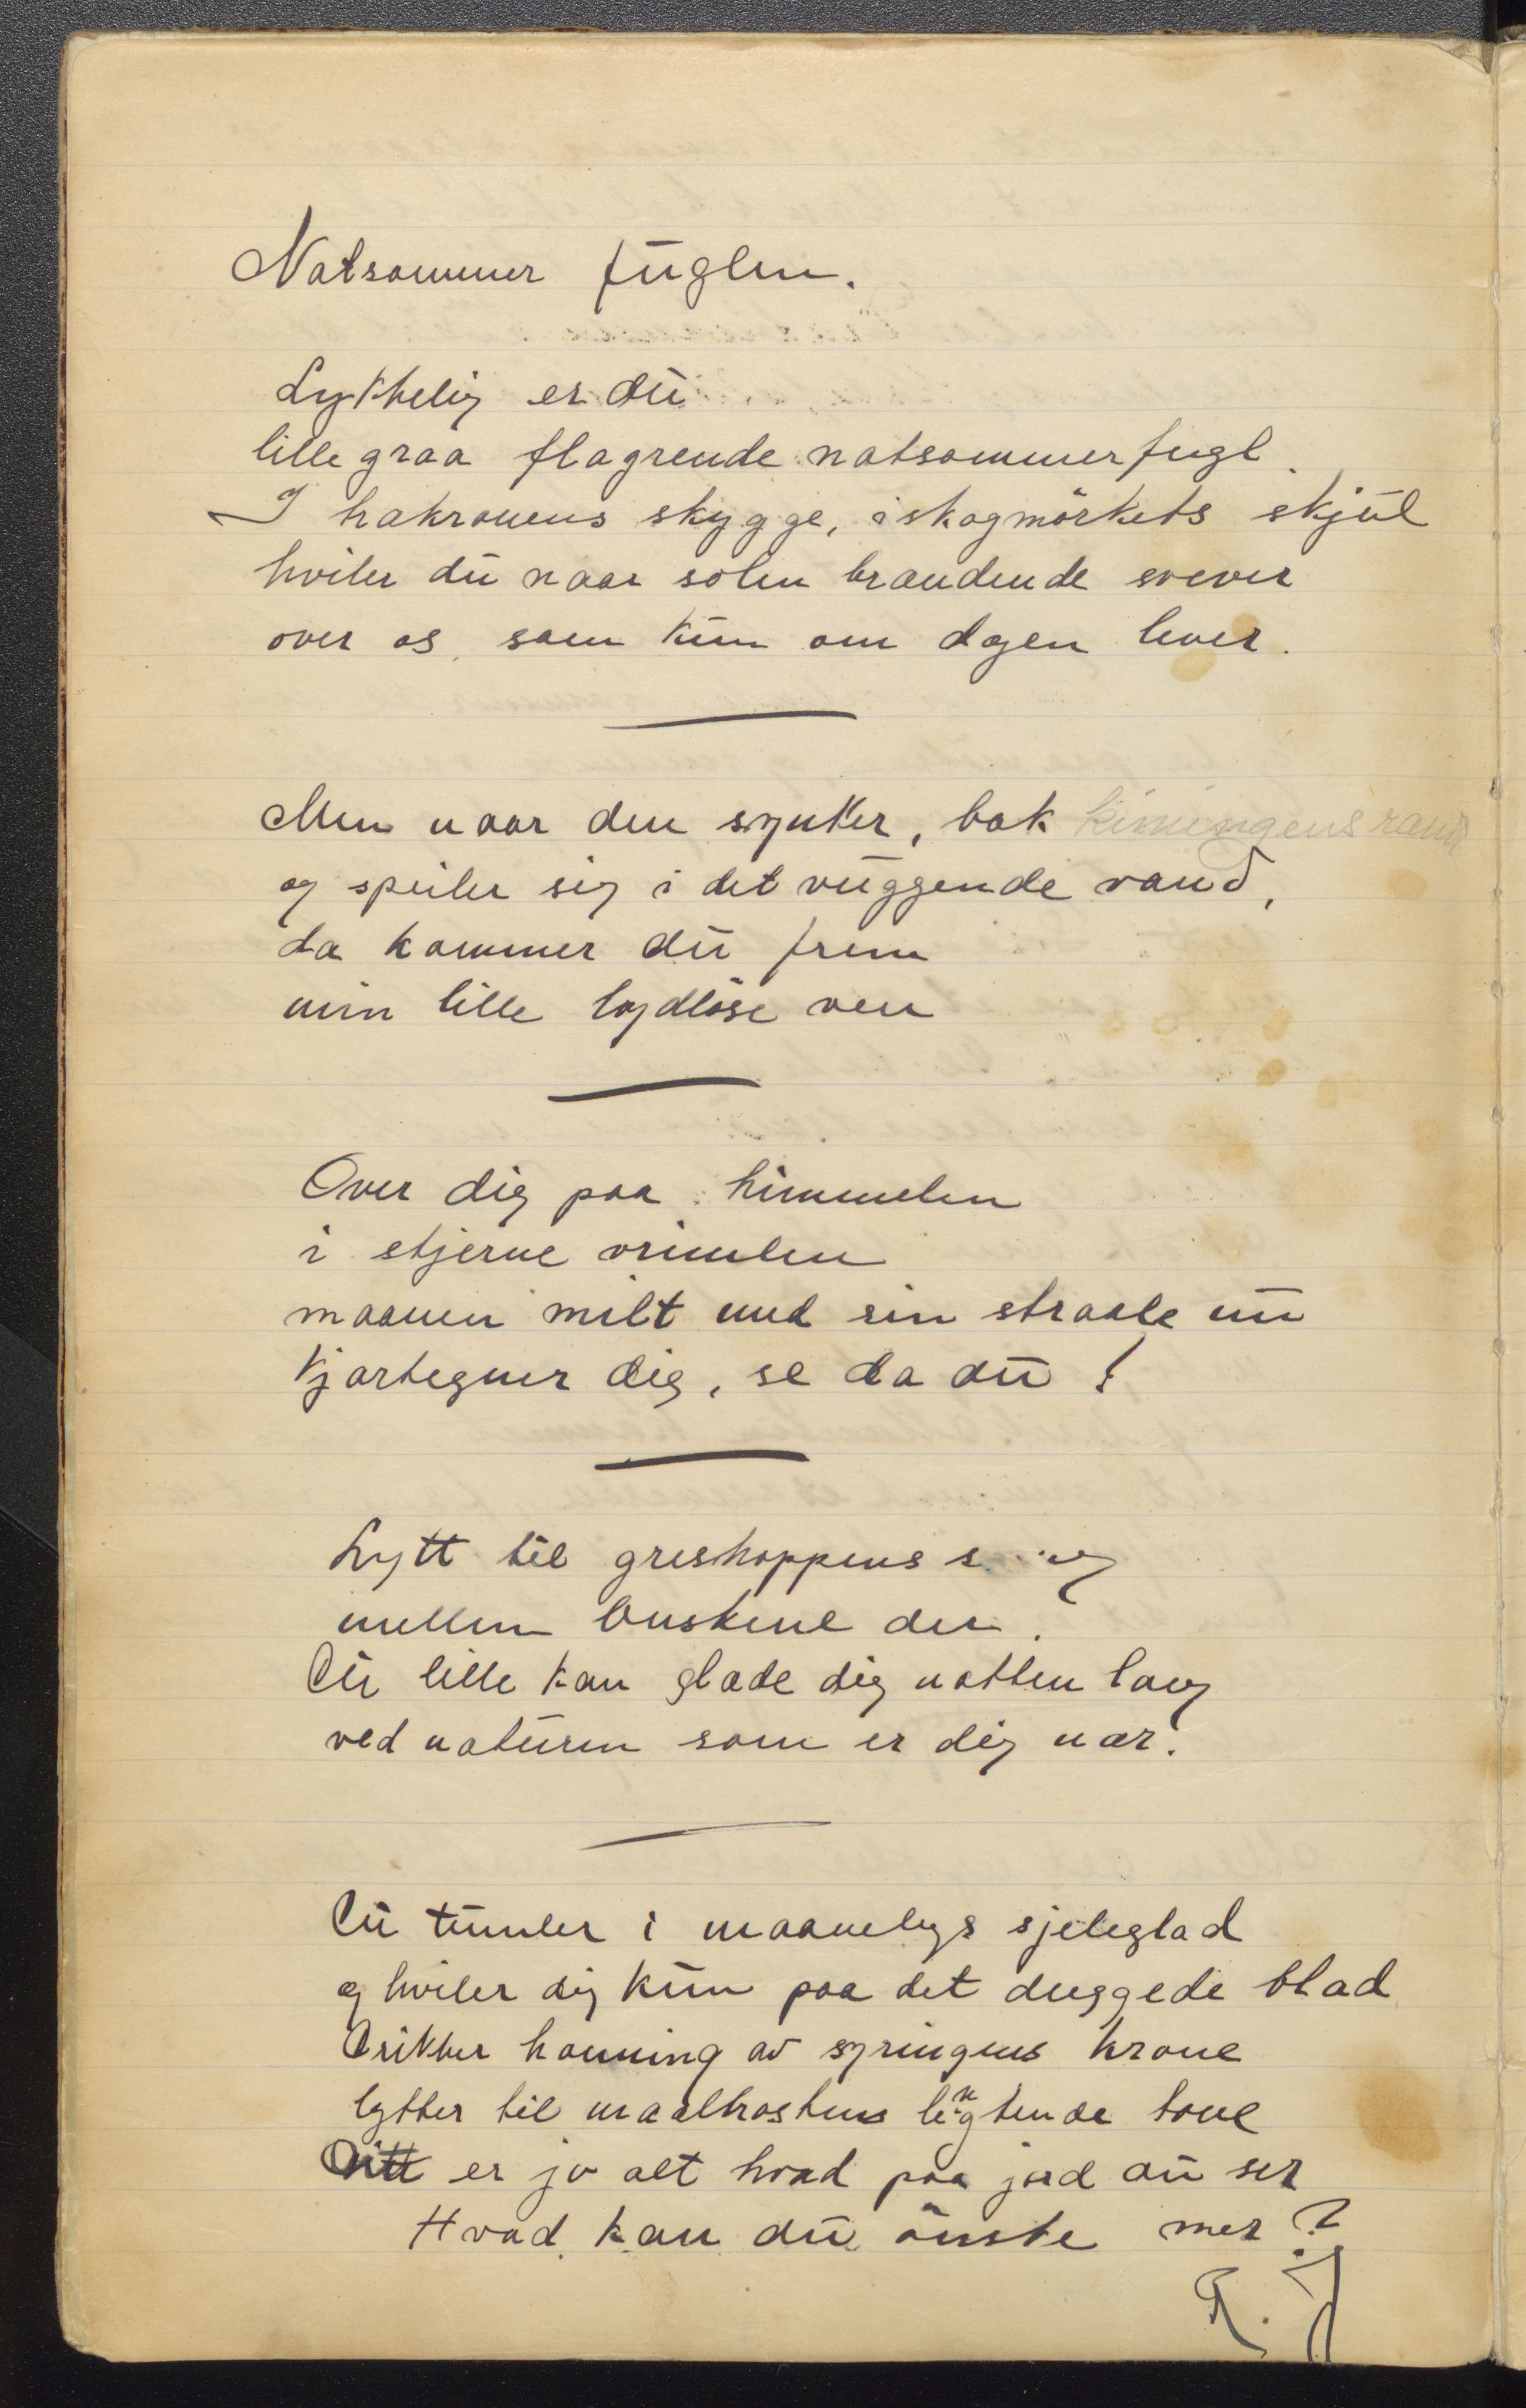 Natsommer fuglen.
Lykkelig er du
lille graa flagrende natsommerfugl.
I trækronens skygge, i skogmörkets skjul
hviler du naar solen brændende svever
over os, som kun om dagen lever.
Men naar den synker, bak kimingens rand
og speiler sig i det vuggende vand,
da kommer du frem
min lille lydlöse ven
Over dig paa himmelen
i stjerne vrimlen
maanen milt med sin straale nu
kjærtegner dig, se da du!
Lytt til greshoppens
mellem buskene der.
Du lille kan glæde dig natten lang
ved naturen som er dig nær.
Du tumler i maanelys sjeleglad
og hviler dig kun paa det duggede blad
Drikker honning av syringens krone
lytter til maaltrostens lengtende tone
Ditt er jo alt hvad paa jord du ser
Hvad kan du önske mer?
R. J